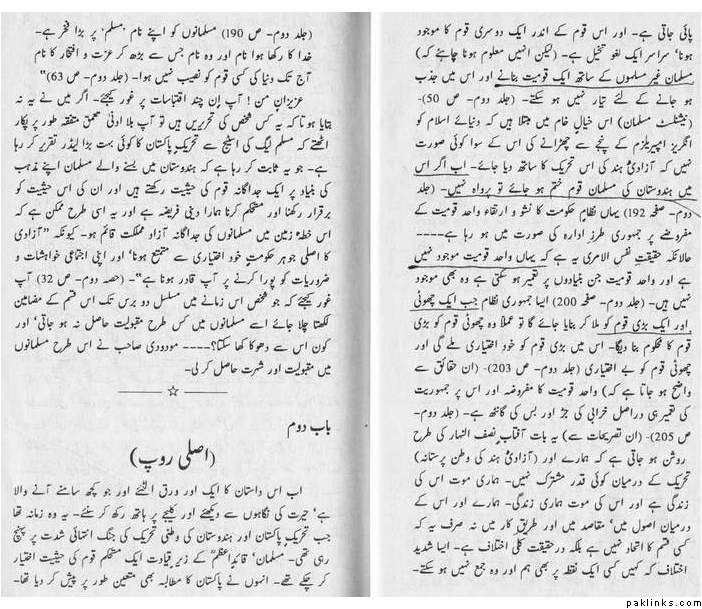 پائی جاتی ہے۔ اور اس قوم کے اندر ایک دوسری قوم کا موجود
ہونا' سراسر ایک لغو تخیل ہے۔ (لیکن انہیں معلوم ہونا چاہئے کہ)
مسلمان غیر مسلموں کے ساتھ ایک قومیت بنانے اور اس میں جذب
ہو جانے کے لئے تیار نہیں ہو سکتے۔ (جلد دوم۔ ص 50)۔
(نیشنلسٹ مسلمان) اس خیال خام میں مبتلا ہیں کہ دنیائے اسلام کو
انگریز امپیریلزم کے پنجے سے چھڑانے کی اس کے سوا کوئی صورت
نہیں کہ آزادیٔ ہند کی اس تحریک کا ساتھ دیا جائے۔ اب اگر اس
میں ہندوستان کی مسلمان قوم ختم ہو جائے تو پرواہ نہیں۔ (جلد
دوم۔ صفحہ 192) یہاں نظام حکومت کا نشو و ارتقاء واحد قومیت کے
مفروضے پر جمہوری طرز ادارہ کی صورت میں ہو رہا ہے----
حالانکہ حقیقت نفس الامری یہ ہے کہ یہاں واحد قومیت موجود نہیں
ہے اور واحد قومیت جن بنیادوں پر تعمیر ہو سکتی ہے وہ بھی موجود
نہیں ہیں۔ (جلد دوم۔ صفحہ 200) ایسا جمہوری نظام جب ایک چھوٹی
اور ایک بڑی قوم کو ملا کر بنایا جائے گا تو عملاً وہ چھوٹی قوم کو بڑی
قوم کا محکوم بنا دیگا۔ اس میں بڑی قوم کو خود اختیاری ملے گی اور
چھوٹی قوم کو بے اختیاری (جلد دوم۔ ص 203)۔ (ان حقائق سے
واضح ہو جاتا ہے کہ) واحد قومیت کا مفروضہ اور اس پر جمہوریت
کی تعمیر ہی دراصل خرابی کی جڑ اور بس کی گانٹھ ہے۔ (جلد دوم۔
ص 205)۔ (ان تصریحات سے) یہ بات آفتاب نصف النہار کی طرح
روشن ہو جاتی ہے کہ ہمارے اور (آزادیٔ ہند کی وطن پرستانہ)
تحریک کے درمیان کوئی قدر مشترک نہیں۔ ہماری موت اس کی
زندگی ہے اور اس کی موت ہماری زندگی۔ ہمارے اور اس کے
درمیان اصول میں' مقاصد میں اور طریق کار میں نہ صرف یہ کہ
کسی قسم کا اتحاد نہیں ہے بلکہ درحقیقت کلی اختلاف ہے۔ ایسا شدید
اختلاف کہ کہیں کسی ایک نقطہ پر بھی ہم اور وہ جمع نہیں ہو سکتے۔
(جلد دوم۔ ص 190) مسلمانوں کو اپنے نام 'مسلم' پر بڑا فخر ہے۔
خدا کا رکھا ہوا نام اور وہ نام جس سے بڑھ کر عزت و افتخار کا نام
آج تک دنیا کی کسی قوم کو نصیب نہیں ہوا۔ (جلد دوم۔ ص 63)"
عزیزان من! آپ ان چند اقتباسات پر غور کیجئے۔ اگر میں نے یہ نہ
بتایا ہوتا کہ یہ کس شخص کی تحریریں ہیں تو آپ بلا ادنیٰ تعمق متفقہ طور پر پکار
اٹھتے کہ مسلم لیگ کی اسٹیج سے تحریک پاکستان کا کوئی بہت بڑا لیڈر تقریر کر رہا
ہے۔ جو یہ ثابت کر رہا ہے کہ ہندوستان میں بسنے والے مسلمان اپنے مذہب
کی بنیاد پر ایک جداگانہ قوم کی حیثیت رکھتے ہیں اور ان کی اس حیثیت کو
برقرار رکھنا اور مستحکم کرنا ہمارا دینی فریضہ ہے اور یہ اسی طرح ممکن ہے کہ
اس خطۂ زمین میں مسلمانوں کی جداگانہ آزاد مملکت قائم ہو۔ کیونکہ "آزادی
کا اصلی جوہر حکومت خود اختیاری سے متمتع ہونا' اور اپنی اجتماعی خواہشات و
ضروریات کو پورا کرنے پر آپ قادر ہونا ہے"۔ (حصہ دوم۔ ص 32) آپ
غور کیجئے کہ جو شخص اس زمانے میں مسلسل دو برس تک اس قسم کے مضامین
لکھتا چلا جائے اسے مسلمانوں میں کس طرح مقبولیت حاصل نہ ہو جاتی' اور
کون اس سے دھوکا کھا سکتا؟---- مودودی صاحب نے اس طرح مسلمانوں
میں مقبولیت اور شہرت حاصل کر لی۔
باب دوم
(اصلی روپ)
اب اس داستان کا ایک اور ورق الٹئے اور جو کچھ سامنے آنے والا
ہے' حیرت کی نگاہوں سے دیکھئے اور کلیجے پر ہاتھ رکھ کر سنئے۔ یہ وہ زمانہ تھا
جب تحریک پاکستان اور ہندوستان کی وطنی تحریک کی جنگ انتہائی شدت پر پہنچ
رہی تھی۔ مسلمان' قائداعظمؒ کے زیر قیادت ایک مستحکم قوم کی حیثیت اختیار
کر چکے تھے۔ انہوں نے پاکستان کا مطالبہ بھی متعین طور پر پیش کر دیا تھا۔
paklinks.com